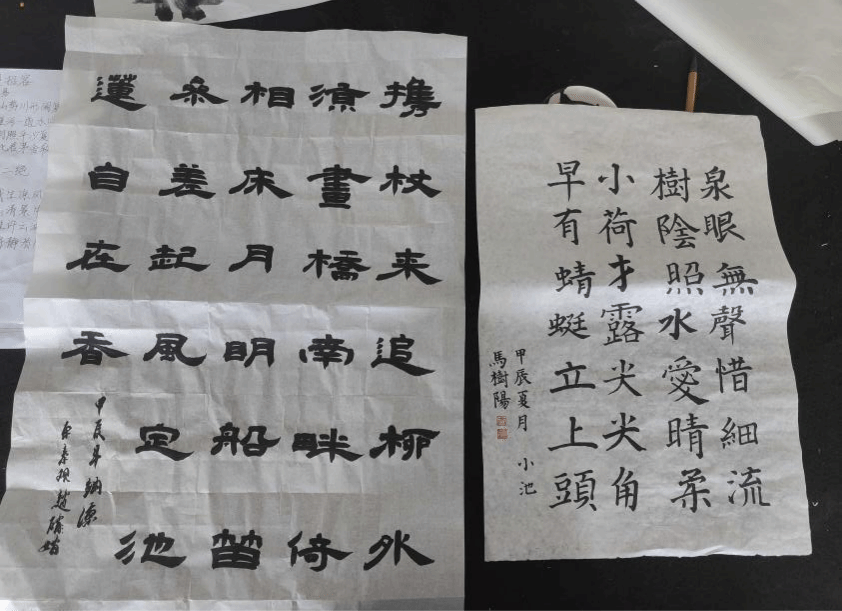 攜杖来追柳外
涼畫橋南畔倚
相床月明船笛
叅差起風定池
蓮自在香
甲辰年納涼
泉眼無聲惜細流
樹陰照水愛晴柔
小荷才露尖尖角
早有蜻蜓立上頭
甲辰夏月 小池
馬樹陽